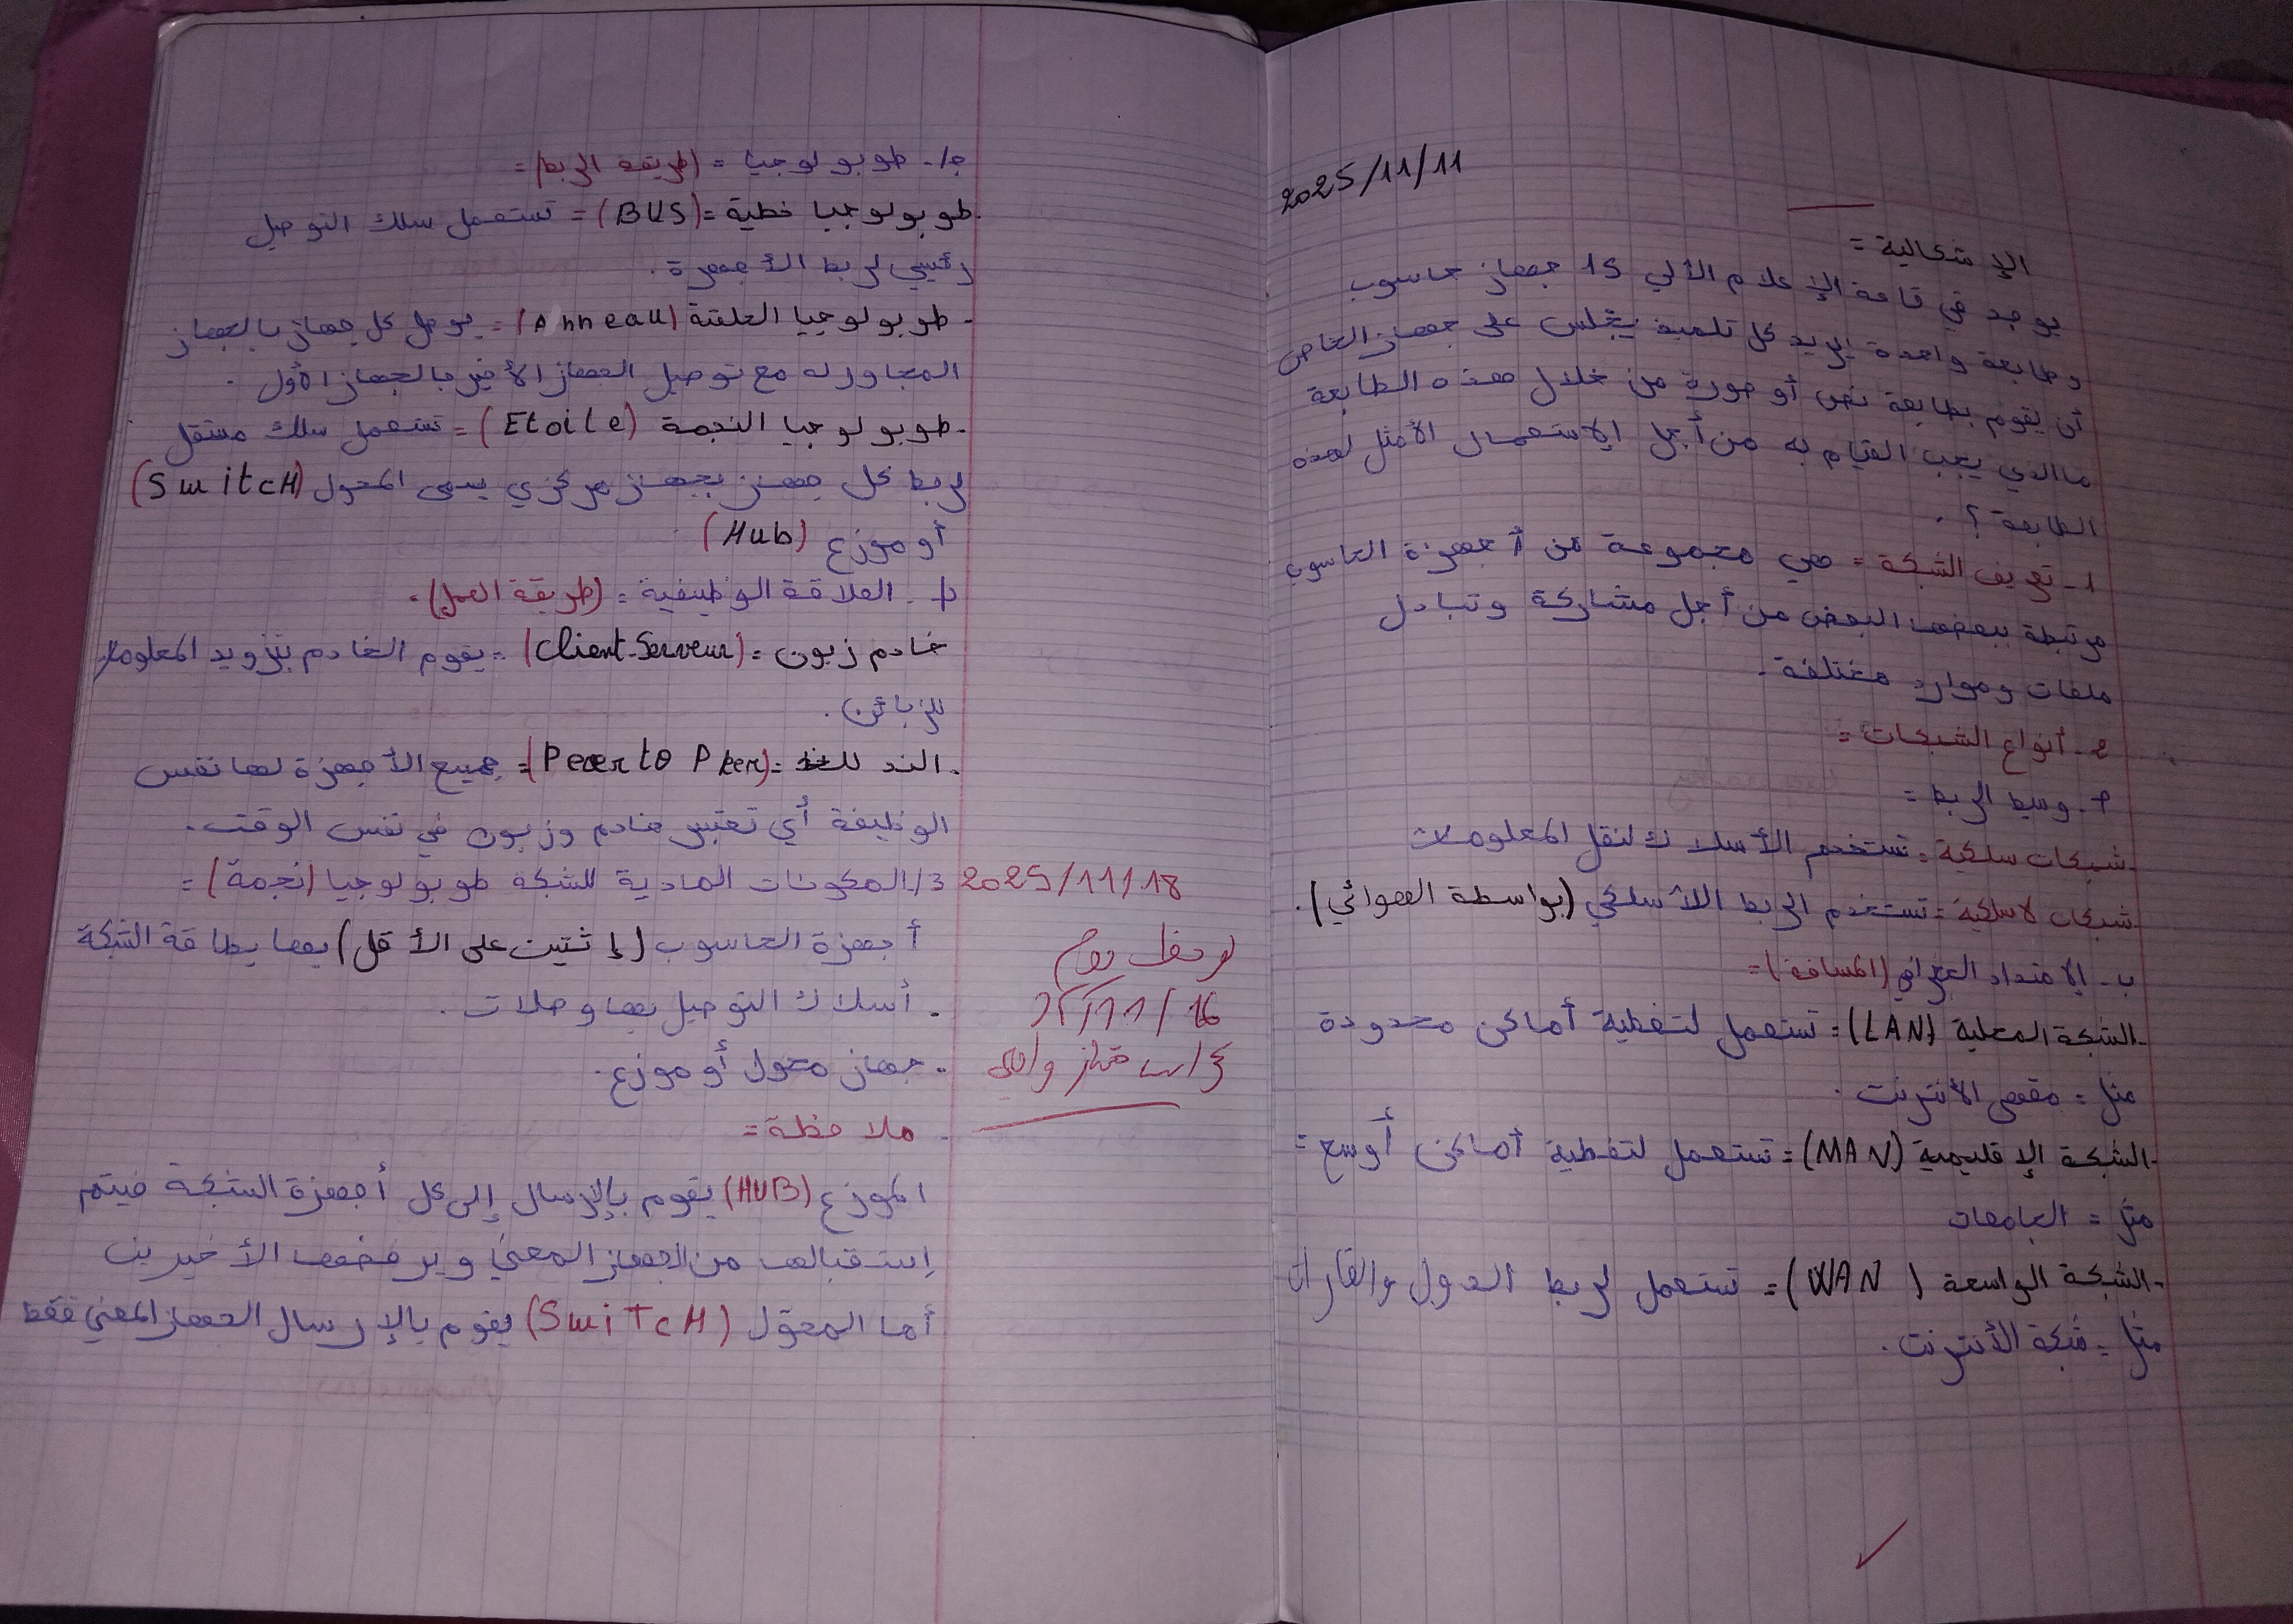 2025/11/11
الإشكالية =
يوجد في قاعة الإعلام الألي 15 جهاز حاسوب
وطابعة واحدة يريد كل تلميذ يجلس على جهاز الخاص
أن يقوم بطابعة نص أو صورة من خلال هذه الطابعة
ما الذي يجب القيام به من أجل الإستعمال الأمثل لهذه
الطابعة ؟ .
1- تعريف الشبكة = هي مجموعة من أجهزة الحاسوب
مرتبطة ببعضها البعض من أجل مشاركة وتبادل
ملفات وموارد مختلفة .
2- أنواع الشبكات =
أ- وسيط الربط =
- شبكات سلكية = تستخدم الأسلاك لنقل المعلومات
شبكات لاسلكية = تستخدم الربط اللاسلكي (بواسطة الهوائي) .
ب- الإمتداد الجغرافي (المسافة) =
- الشبكة المحلية (LAN) = تستعمل لتغطية أماكن محدودة
مثل = مقهى الأنترنت .
- الشبكة الإقليمية (MAN) = تستعمل لتغطية أماكن أوسع =
مثل = الجامعات
- الشبكة الواسعة (WAN) = تستعمل لربط الدول والقارات
مثل = شبكة الأنترنت .
ج/- طوبولوجيا = (طريقة الربط) =
- طوبولوجيا خطية = (BUS) = تستعمل سلك التوصيل
رئيسي لربط الأجهزة .
- طوبولوجيا الحلقة (Anneau) = يوصل كل جهاز بالجهاز
المجاور له مع توصيل الجهاز الأخير بالجهاز الأول .
- طوبولوجيا النجمة (Etoile) = تستعمل سلك مستقل
لربط كل جهاز بجهاز مركزي يسمى المحول (SwitcH)
أو موزع (Hub)
د/- العلاقة الوظيفية = (طريقة العمل) .
خادم زبون = (Client-Serveur) = يقوم الخادم بتزويد المعلومات
للزبائن .
- الند للند = (Peer to Peer) = جميع الأجهزة لها نفس
الوظيفة أي تعتبر خادم وزبون في نفس الوقت .
2025/11/18
3/ المكونات المادية للشبكة طوبولوجيا (نجمة) =
أجهزة الحاسوب (إثنتين على الأقل) بها بطاقة الشبكة
- أسلاك التوصيل بها وصلات .
- جهاز محول أو موزع .
لوحظ يوم
16/11/
- ملاحظة =
الموزع (HUB) يقوم بالإرسال إلى كل أجهزة الشبكة فيتم
إستقبالها من الجهاز المعني ويرفضها الأخيرين
أما المحوّل (SwiTcH) يقوم بالإرسال الجهاز المعني فقط